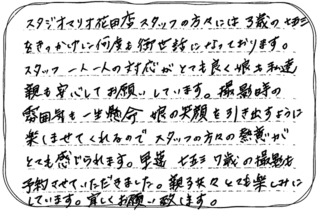 スタジオマリオ花田店スタッフの方々には3歳の七五三
をきっかけに何度も御世話になっております。
スタッフ一人一人の対応がとても良く娘も私達
親も安心してお願いしています。撮影時の
雰囲気も一生懸命 娘の笑顔を引き出すように
楽しませてくれるので スタッフの方々の熱意が
とても感じられます。早速 七五三 7歳の撮影も
予約させていただきました。親子共々とても楽しみに
しています。宜しくお願い致します。